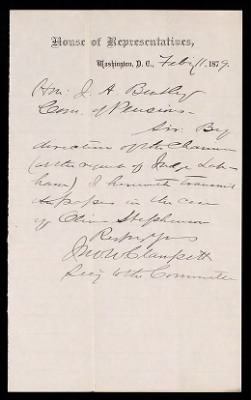 House of Representatives,
Washington, D. C., Feby 11, 1879.
Hon. J. A. Bentley
Com. of Pensions.
Sir. By
direction of the Chairman
(at the request of Judge
) I herewith transmit
the papers in the case
of Stephenson
Respy Yours
Clampitt
Secy to the Committee